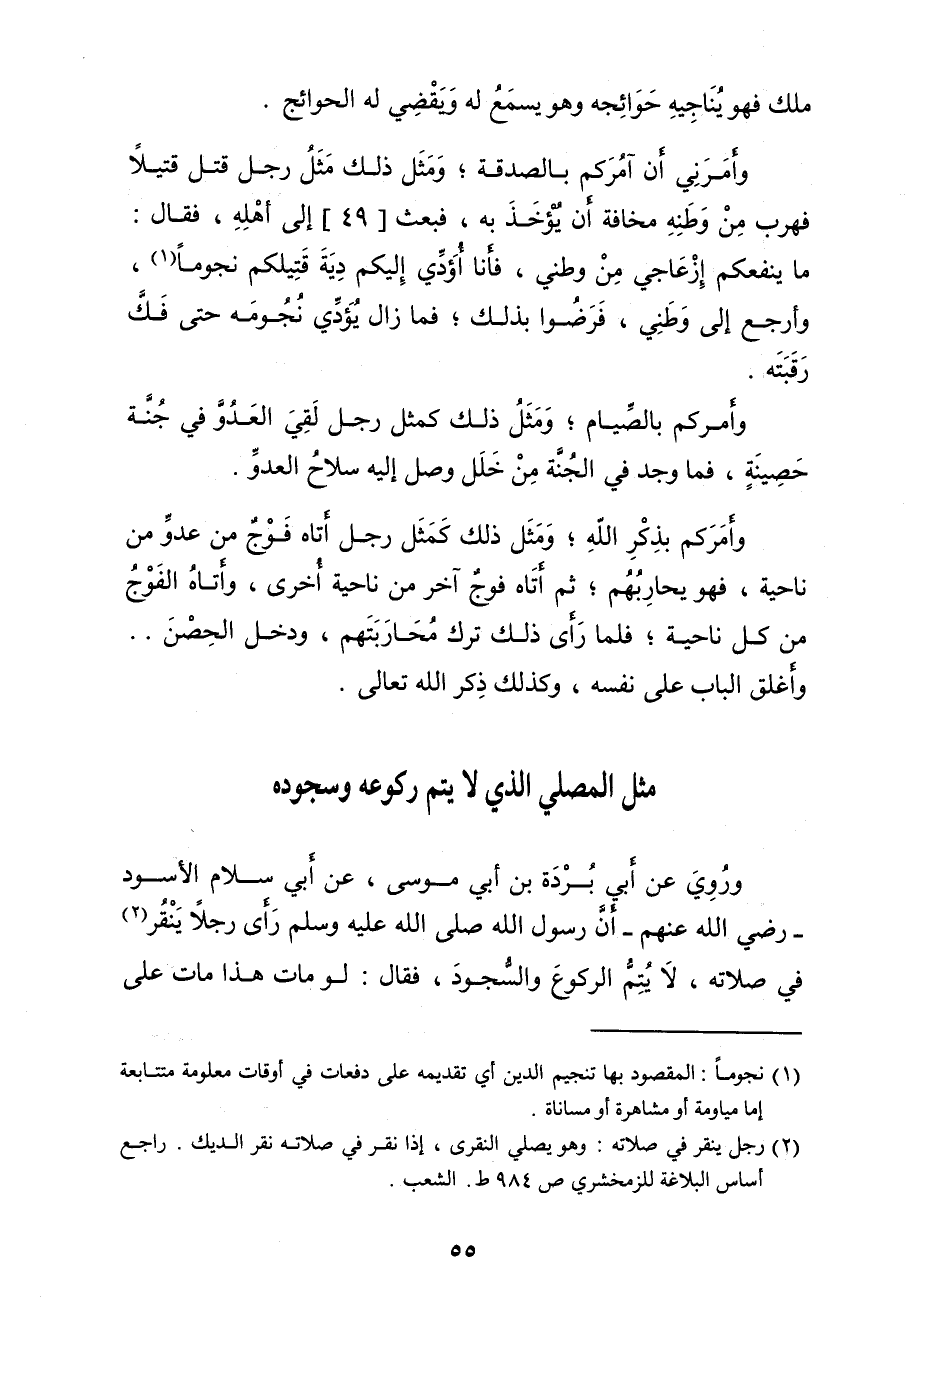 ملك فهو يُنَاجِيهِ حَوَائِجه وهو يسمَعُ له وَيَقْضِي له الحوائج .
وأَمَرَنِي أن آمُرَكم بالصدقة ؛ وَمَثَل ذلك مَثَلُ رجل قتل قتيلاً
فهرب مِنْ وَطَنِهِ مخافة أَن يُؤْخَذَ به ، فبعث [ ٤٩ ] إلى أهْلِهِ ، فقال :
ما ينفعكم إزْعَاجي مِنْ وطني ، فأنا أُؤَدِّي إليكم دِيَةَ قَتِيلكم نجوماً(١) ،
وأرجع إلى وَطَنِي ، فَرَضُوا بذلك ؛ فما زال يُؤَدِّي نُجُومَه حتى فَكَّ
رَقَبَتَه .
وأَمركم بالصِّيام ؛ وَمَثَلُ ذلك كمثل رجل لَقِيَ العَدُوَّ في جُنَّة
حَصِينَةٍ ، فما وجد في الجُنَّة مِنْ خَلَل وصل إليه سلاحُ العدوِّ .
وأَمَرَكم بذِكْرِ اللّهِ ؛ وَمَثَل ذلك كَمَثَل رجل أَتاه فَوْجٌ من عدوٍّ من
ناحية ، فهو يحارِبُهُم ؛ ثم أَتَاه فوجٌ آخر من ناحية أُخرى ، وأَتاهُ الفَوْجُ
من كل ناحية ؛ فلما رَأى ذلك ترك مُحَارَبَتَهم ، ودخل الحِصْنَ . .
وأَغلق الباب على نفسه ، وكذلك ذِكر الله تعالى .
مثل المصلي الذي لا يتم ركوعه وسجوده
ورُوِيَ عن أَبي بُرْدَة بن أبي موسى ، عن أَبي سلام الأسود
ـ رضي الله عنهم ـ أَنَّ رسول الله صلى الله عليه وسلم رَأَى رجلاً يَنْقُر(٢)
في صلاته ، لاَ يُتِمُّ الركوعَ والسُّجودَ ، فقال : لو مات هذا مات على
(١) نجوماً : المقصود بها تنجيم الدين أي تقديمه على دفعات في أوقات معلومة متتابعة
إما مياومة أو مشاهرة أو مساناة .
(٢) رجل ينقر في صلاته : وهو يصلي النقرى ، إذا نقر في صلاته نقر الديك . راجع
أساس البلاغة للزمخشري ص ٩٨٤ ط . الشعب .
٥٥